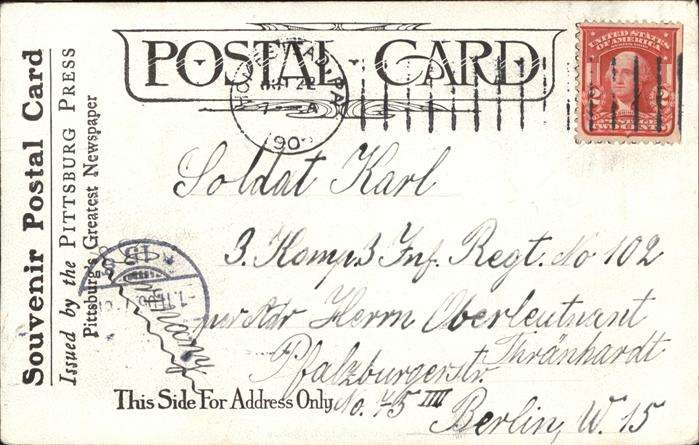 POSTAL CARD
UNITED STATES
OF AMERICA
TWO CENTS
Souvenir Postal Card
Issued by the PITTSBURG PRESS
Pittsburg's Greatest Newspaper
Soldat Karl
3. Komp. 3 Inf. Regt. No 102
per Adr Herrn Oberleutnant
Thränhardt
Pfalzburgerstr.
No. 75 IIII
Berlin, W. 15
Germany
This Side For Address Only